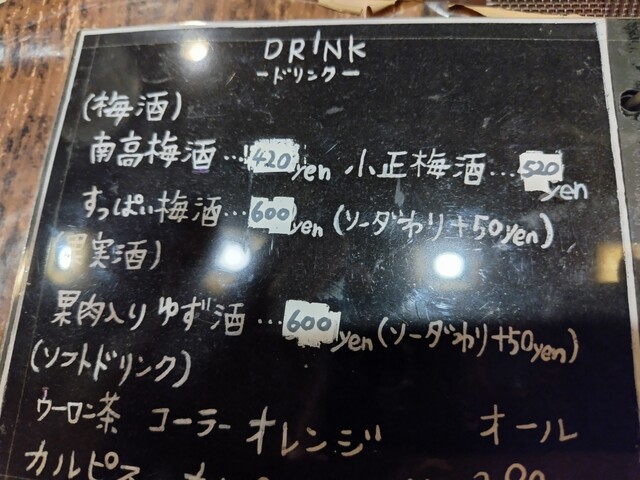 DRINK
ードリンクー
(梅酒)
南高梅酒…420yen 小正梅酒…520yen
すっぱい梅酒…600yen (ソーダわり+50yen)
(果実酒)
果肉入りゆず酒…600yen (ソーダわり+50yen)
(ソフトドリンク)
ウーロン茶 コーラー オレンジ オール
カルピス